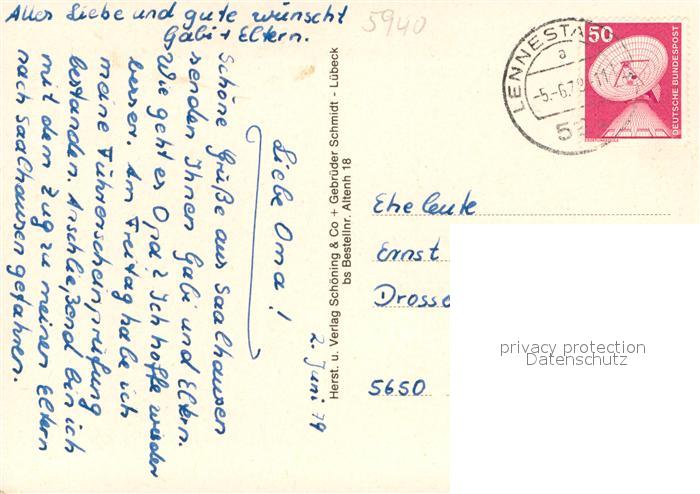 2. Juni 79
Liebe Oma!
Schöne Grüße aus Saalhausen
senden Ihnen Gabi und Eltern.
Wie geht es Opa? Ich hoffe wieder
besser. Am Freitag habe ich
meine Führerscheinprüfung
bestanden. Anschließend bin ich
mit dem Zug zu meinen Eltern
nach Saalhausen gefahren.
Alles Liebe und gute wünscht
Gabi + Eltern.
5940
Herst. u. Verlag Schöning & Co + Gebrüder Schmidt - Lübeck
bs Bestellnr. Altenh 18
LENNESTA
a
-5.-6.79
50
DEUTSCHE BUNDESPOST
Eheleute
Ernst
Drosse
5650
privacy protection
Datenschutz